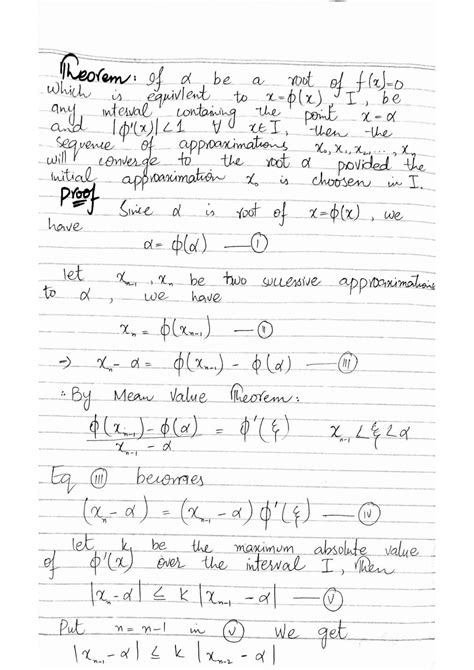 Theorem: If α be a root of f(x)=0
which is equivlent to x=ϕ(x). I, be
any interval containing the point x=α
and |ϕ'(x)|<1 ∀ x∈I, then the
sequence of approximations x₀, x₁, x₂, ..., xₙ
will converge to the root α povided the
initial approximation x₀ is choosen in I.
Proof
Since α is root of x=ϕ(x), we
have
α=ϕ(α) — (I)
let xₙ₋₁, xₙ be two successive approximations
to α, we have
xₙ = ϕ(xₙ₋₁) — (II)
→ xₙ - α = ϕ(xₙ₋₁) - ϕ(α) — (III)
∴ By Mean Value Theorem:
ϕ(xₙ₋₁) - ϕ(α) / xₙ₋₁ - α = ϕ'(ξ) xₙ₋₁ < ξ < α
Eq (III) becomes
(xₙ - α) = (xₙ₋₁ - α) ϕ'(ξ) — (IV)
let k, be the maximum absolute value
of ϕ'(x) over the interval I, Then
|xₙ - α| ≤ k |xₙ₋₁ - α| — (V)
Put n = n-1 in (V) We get
|xₙ₋₁ - α| ≤ k |xₙ₋₂ - α|